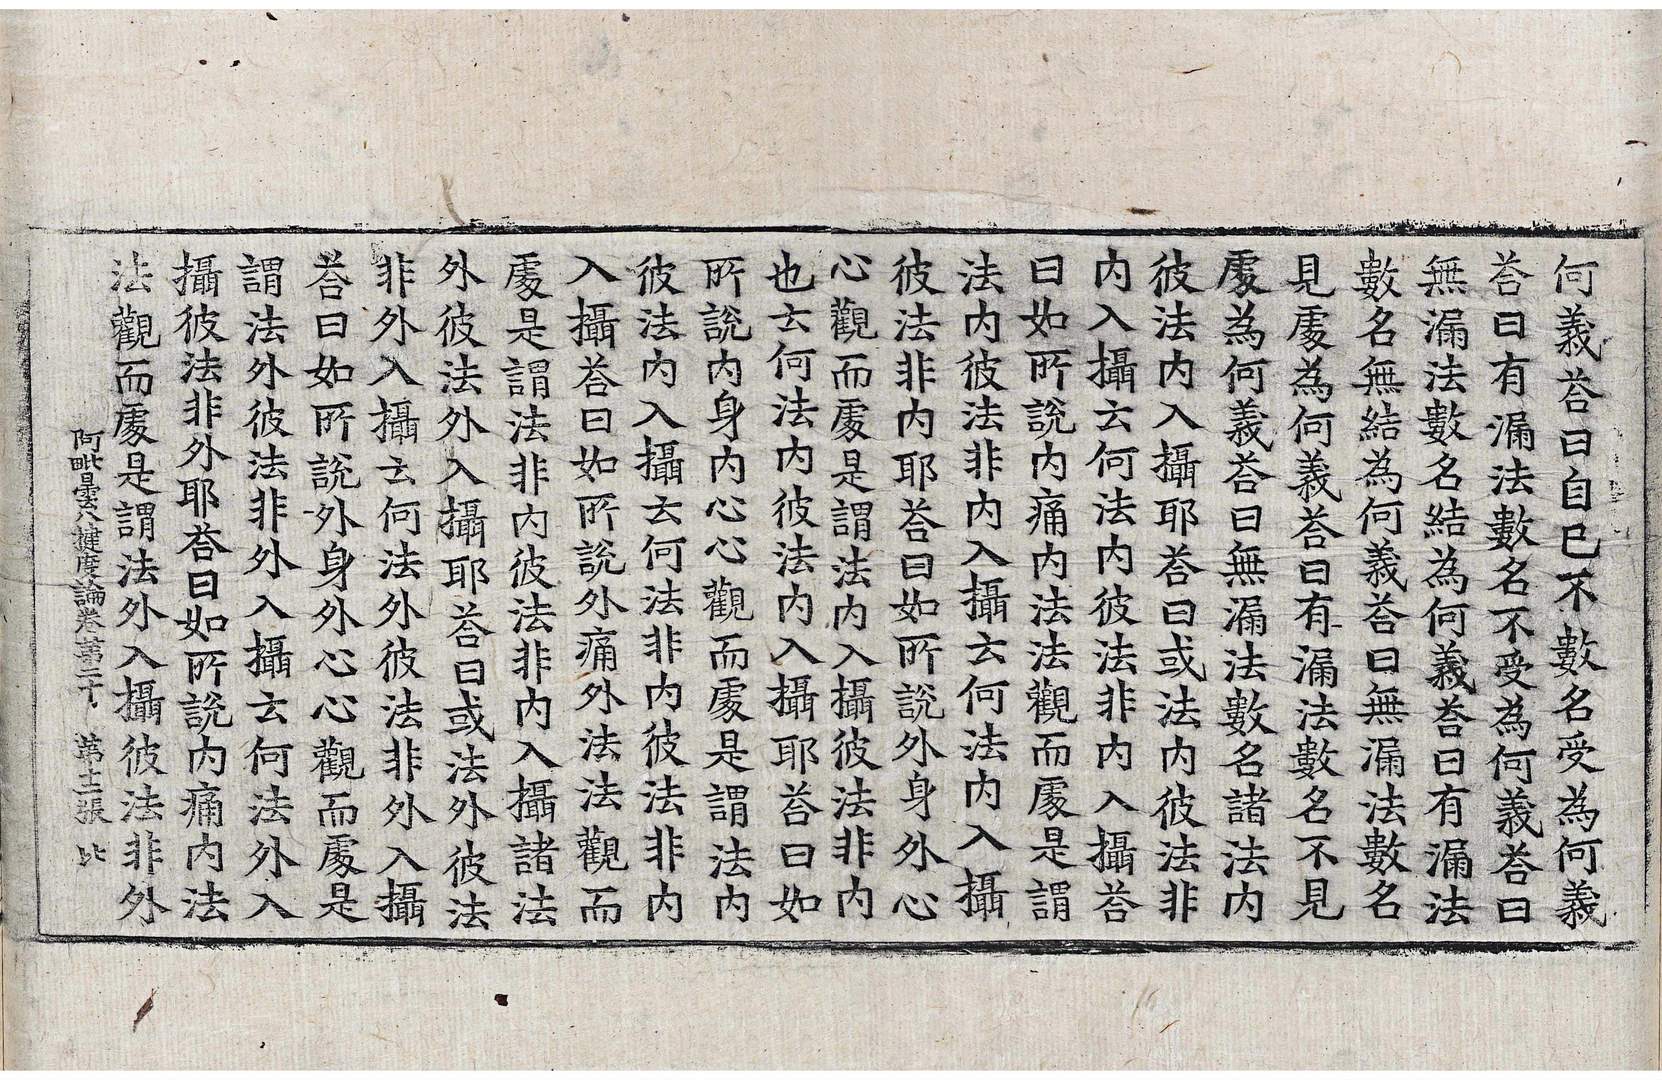 何義荅曰自已不數名受為何義
荅曰有漏法數名不受為何義荅曰
無漏法數名結為何義荅曰有漏法
數名無結為何義荅曰無漏法數名
見處為何義荅曰有漏法數名不見
處為何義荅曰無漏法數名諸法內
彼法內入攝耶荅曰或法內彼法非
內入攝云何法內彼法非內入攝荅
曰如所說內痛內法法觀而處是謂
法內彼法非內入攝云何法內入攝
彼法非內耶荅曰如所說外身外心
心觀而處是謂法內入攝彼法非內
也云何法內彼法內入攝耶荅曰如
所說內身內心心觀而處是謂法內
彼法內入攝云何法非內彼法非內
入攝荅曰如所說外痛外法法觀而
處是謂法非內彼法非內入攝諸法
外彼法外入攝耶荅曰或法外彼法
非外入攝云何法外彼法非外入攝
荅曰如所說外身外心心觀而處是
謂法外彼法非外入攝云何法外入
攝彼法非外耶荅曰如所說內痛內法
法觀而處是謂法外入攝彼法非外
阿毗曇八揵度論卷第三十 第十二張 比